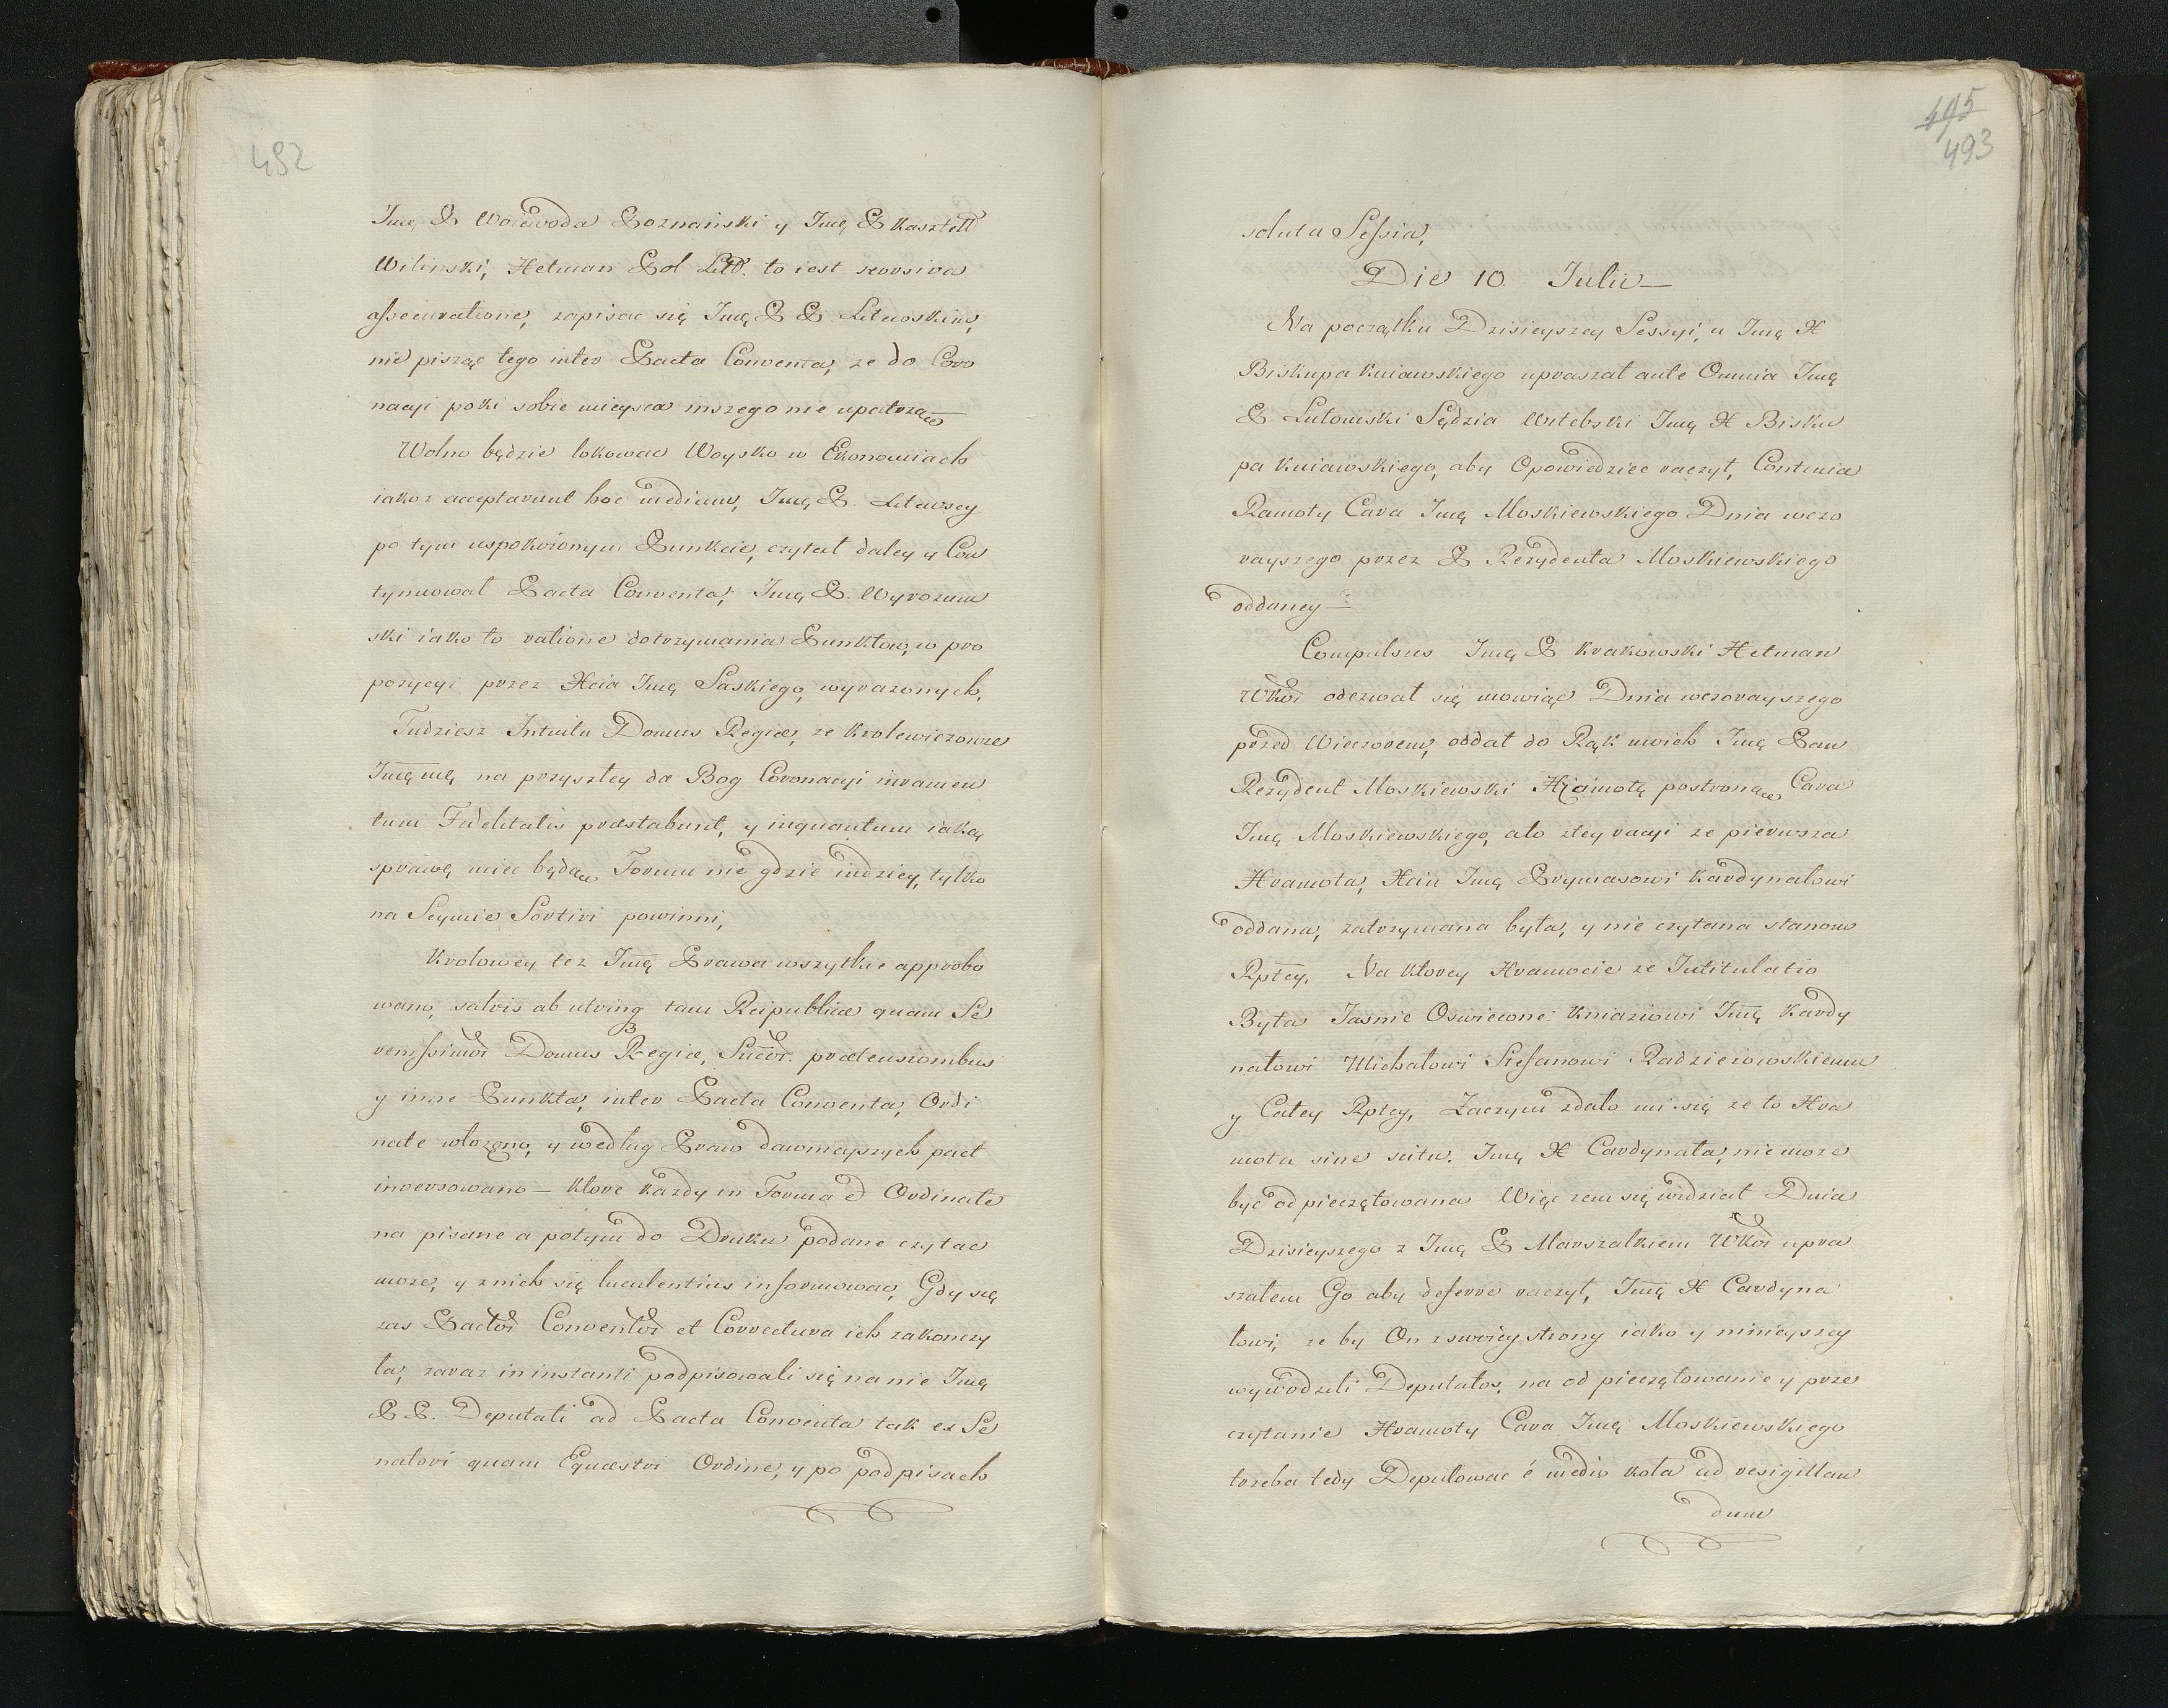 492
Jmę P Woiewoda Poznański y Jmę P Kasztell
Wilinski, Hetman Pol Littt. to iest seorsiva
assecuratione, zapisac się Jmę P P. Litewskim,
nie pisząc tego inter Pacta Conventa, ze do Coro
nacyi poki sobie mieysca inszego nie upatrzą
Wolno będzie lokowac Woysko w Ekonomiach
iakoz acceptarunt hoc medium, Jmę P. Litewscy
po tym uspokoionym Punkcie, czytał daley y Con
tynuował Pacta Conventa, Jmę P. Wyrozem
ski iako to ratione dotrzymania Punktow, w pro
pozycyi przez Xcia Jmę Saskiego, wyrazonych,
Tudziesz Intuitu Domus Regiæ, ze Krolewiczowie
Jmęmę, na przyszłey da Bog Coronacyi iuramen
tum Fidelitatis præstabunt, y inquantum iaką
sprawę miec będą, Forum nie gdzie indziey, tylko
na Seymie Sortiri powinni,
Krolowey tez Jmę Prawa wszytkie approbo
wano, salvis ab utring tam Reipublicæ quam Se
renissimæ Domus Regiæ, Succor. prætensionibus
y inne Punkta, inter Pacta Conventa, Ordi
nate włozono, y według Praw dawnieyszych pact
inversowano — Ktore kazdy in Forma et Ordinate
na pisane a potym do Druku podane czytac
moze, y znich się luculentius informowac, Gdy się
zas Pactor Conventor et Correctura ich zakonczy
ła, zaraz in instanti podpisowali się na nie Jmę
P P. Deputati ad Pacta Conventa tak ex Se
natori quam Equæstri Ordine, y po podpisach
495
493
soluta Sessia,
Die 10 Julii —
Na początku Dzisieyszey Sessyi, u Jmę X
Biskupa Kuiawskiego upraszał ante Omnia Jmę
P Lutomski Sędzia Witebski Jmę X Bisku
pa Kuiawskiego, aby Opowiedziec raczył, Contenta
Ramoty Cara Jmę Moskiewskiego Dnia wczo
rayszego przez P Rezydenta Moskiewskiego
oddaney —
Compulsus Jmę P Krakowski Hetman
WKor odezwał się mowiąc Dnia wczorayszego
przed Wieczorem, oddał do Rąk moich Jmę Pan
Rezydent Moskiewski Hramotę postronną Cara
Jmę Moskiewskiego, ato ztey racyi ze pierwsza
Hramota, Xciu Jmę Prymasowi Kardynałowi
oddana, zatrzymana była, y nie czytana stanom
Rptey, Na ktorey Hramocie ze Intitulatio
Była Jasnie Oswiecone Kniaziowi Jmę Kardy
nałowi Michałowi Stefanowi Radzieiowskiemu
y Całey Rptey, Zaczym zdało mi się ze to Hra
mota sine scitu. Jmę X Cardynała, nie moze
być odpieczętowana Więc zem się widział Dnia
Dzisieyszego z Jmę P Marszałkiem WKor upra
szałem Go aby deferre raczył, Jmę X Cardyna
łowi, ze by On zswoiey strony iako y ninieyszey
wywodzili Deputatos, na od pieczętowanie y prze
czytanie Hramoty Cara Jmę Moskiewskiego
trzeba tedy Deputowac é medio koła ad resigillan
dum